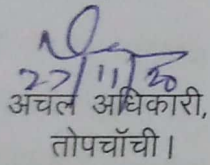 27/11/20
अचल अधिकारी,
तोपचाँची।